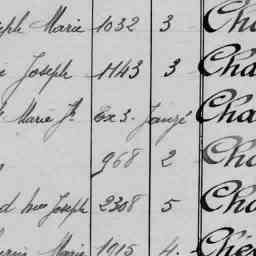 eph Marie 1032 3 Cha
Joseph 1143 3 Cha
Marie Jh Ex 3. Janzé Cha
968 2 Cha
d Joseph 2308 5 Cha
Marie 1915 4. Ché